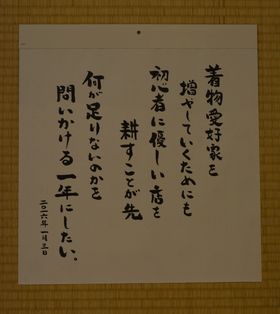 着物愛好家を
増やしていくためにも
初心者に優しい店を
耕すことが先
何が足りないのかを
問いかける一年にしたい。
二〇二六年一月三日